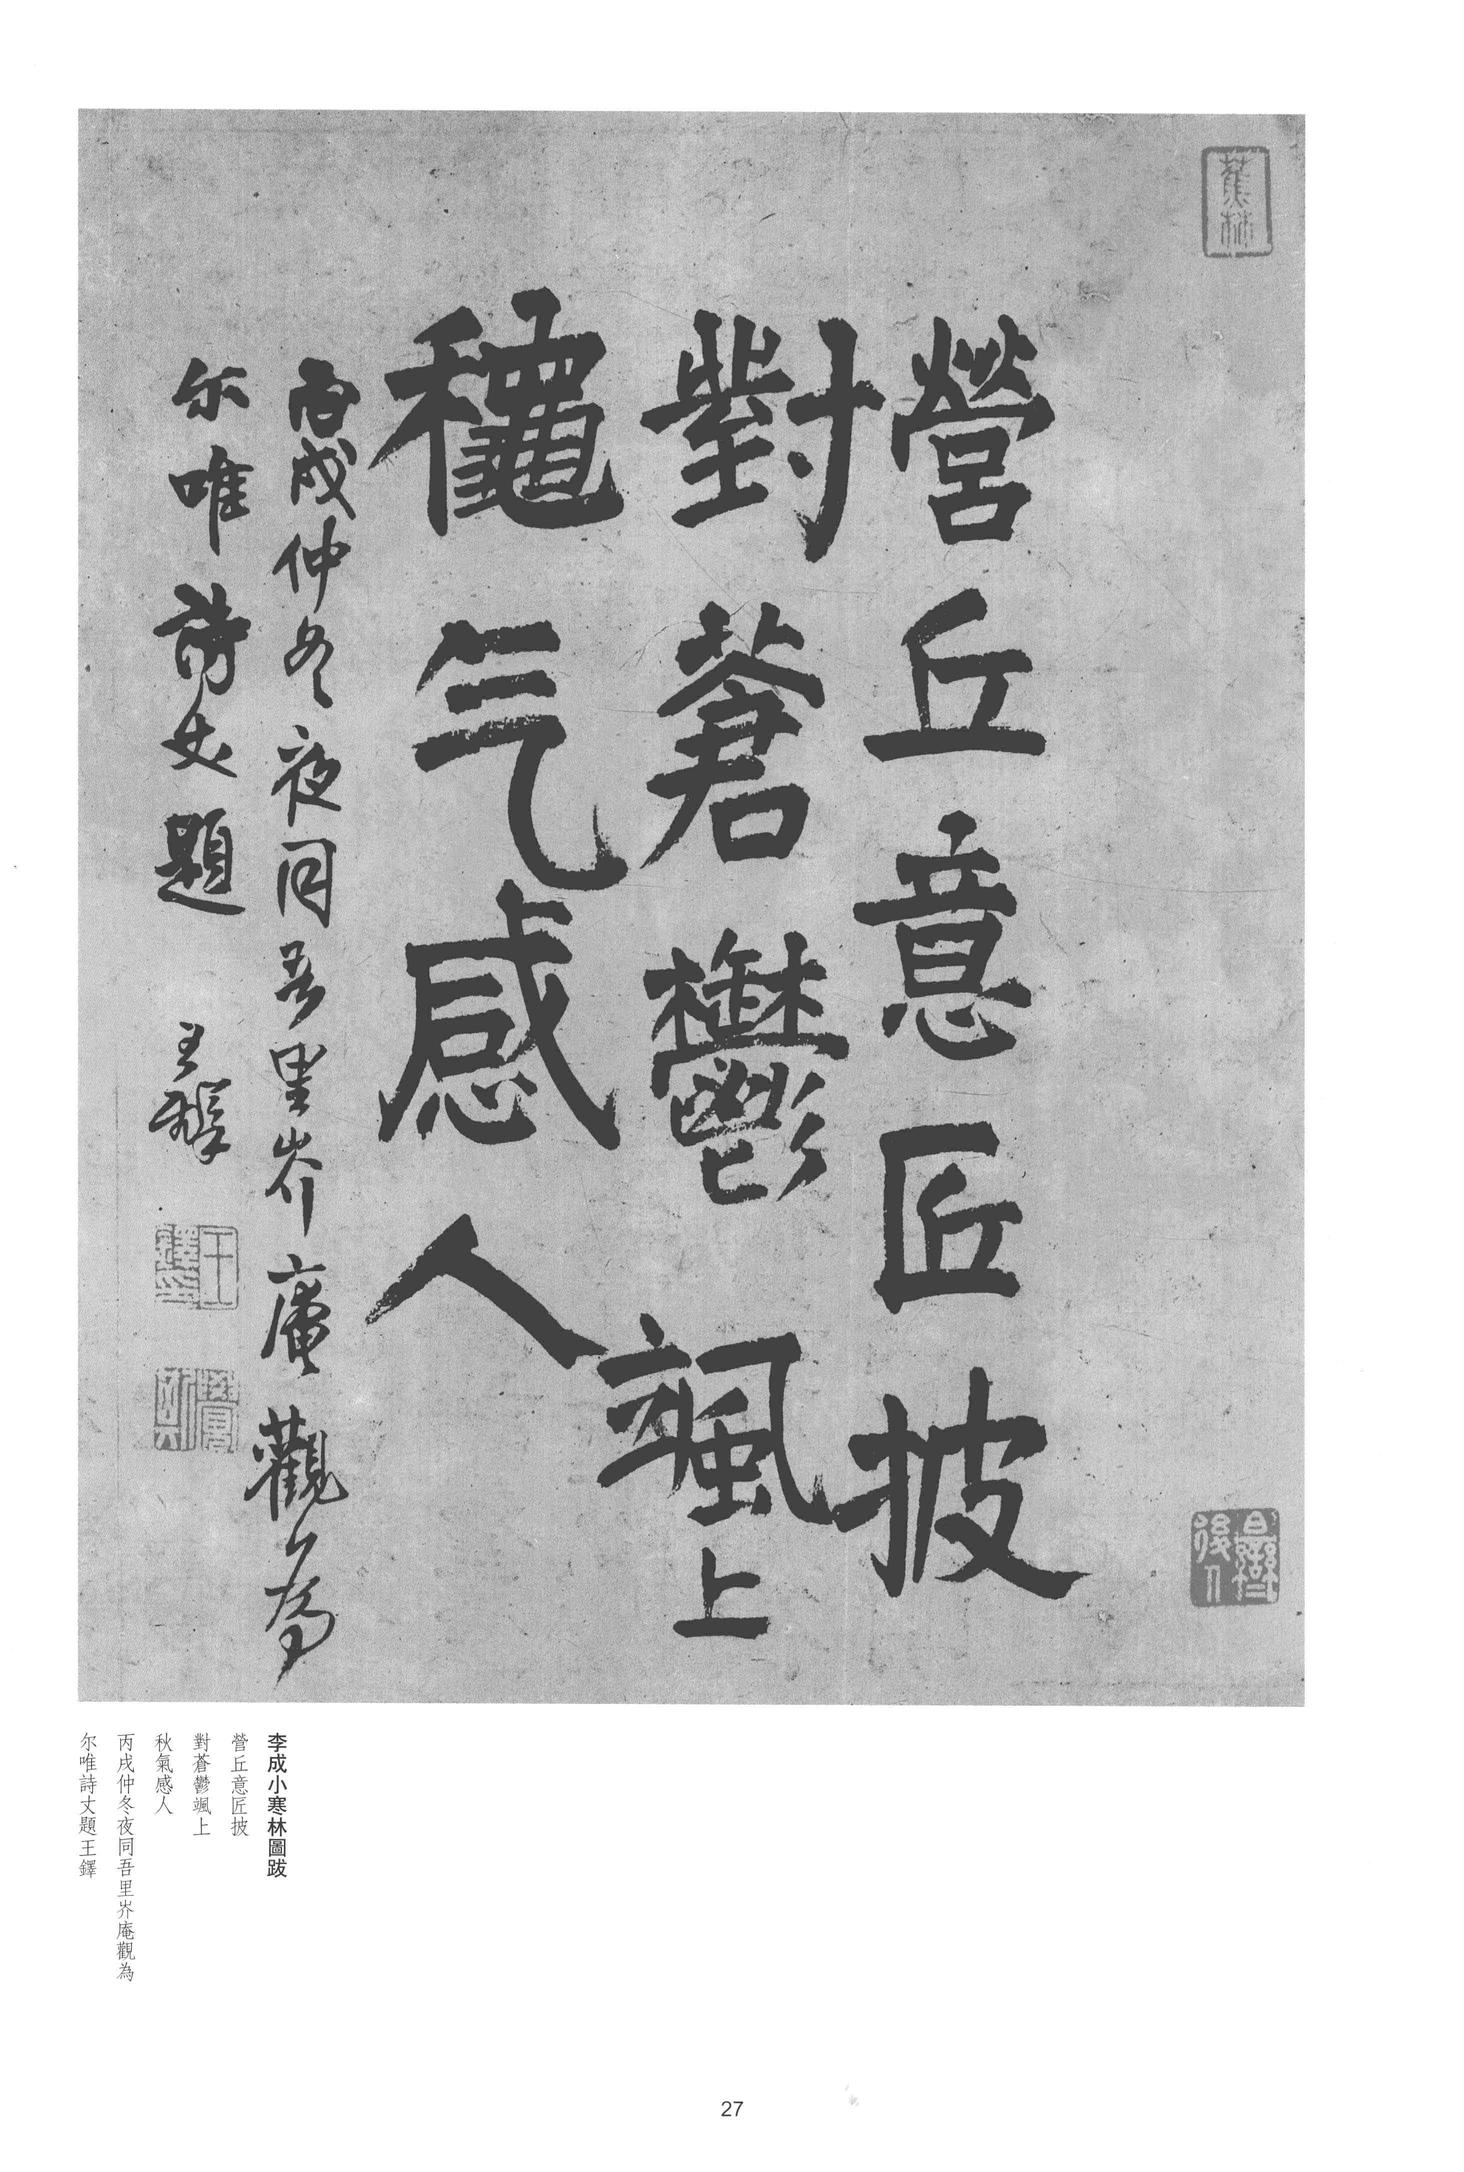 蕉林
營丘意匠披
對蒼鬱颯上
龝气感人
丙戌仲冬夜同吾里岕庵觀為
尔唯詩丈題 王鐸
王鐸之印
後人
李成小寒林圖跋
營丘意匠披
對蒼鬱颯上
秋氣感人
丙戌仲冬夜同吾里岕庵觀為
尔唯詩丈題王鐸
27